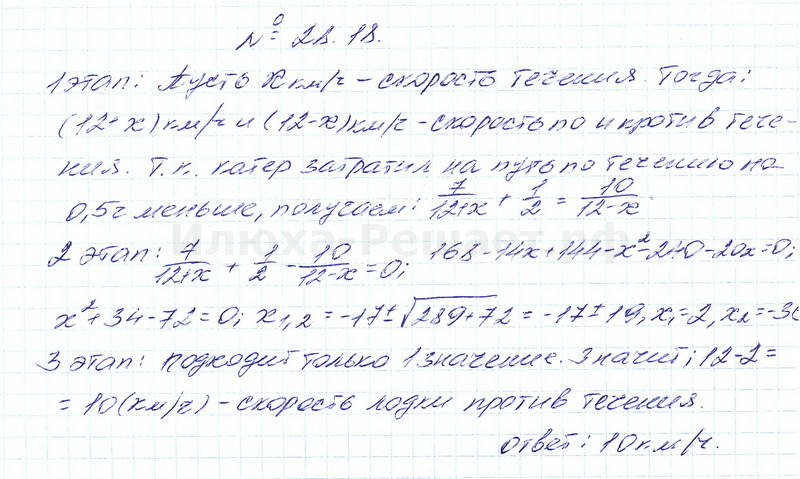 № 28.18.
1 этап: Пусть x км/ч – скорость течения. Тогда:
(12+x) км/ч и (12-x) км/ч – скорость по и против тече-
ния. Т.к. катер затратил на путь по течению на
0,5ч меньше, получаем: 7/(12+x) + 1/2 = 10/(12-x).
2 этап: 7/(12+x) + 1/2 - 10/(12-x) = 0; 168-14x+144-x²-240-20x=0;
x²+34-72=0; x1,2 = -17±√(289+72) = -17±19, x1=2, x2=-36
3 этап: подходит только 1 значение. Значит; 12-2=
= 10 (км/ч) – скорость лодки против течения.
Ответ: 10 км/ч.
Илюха-Решает.рф